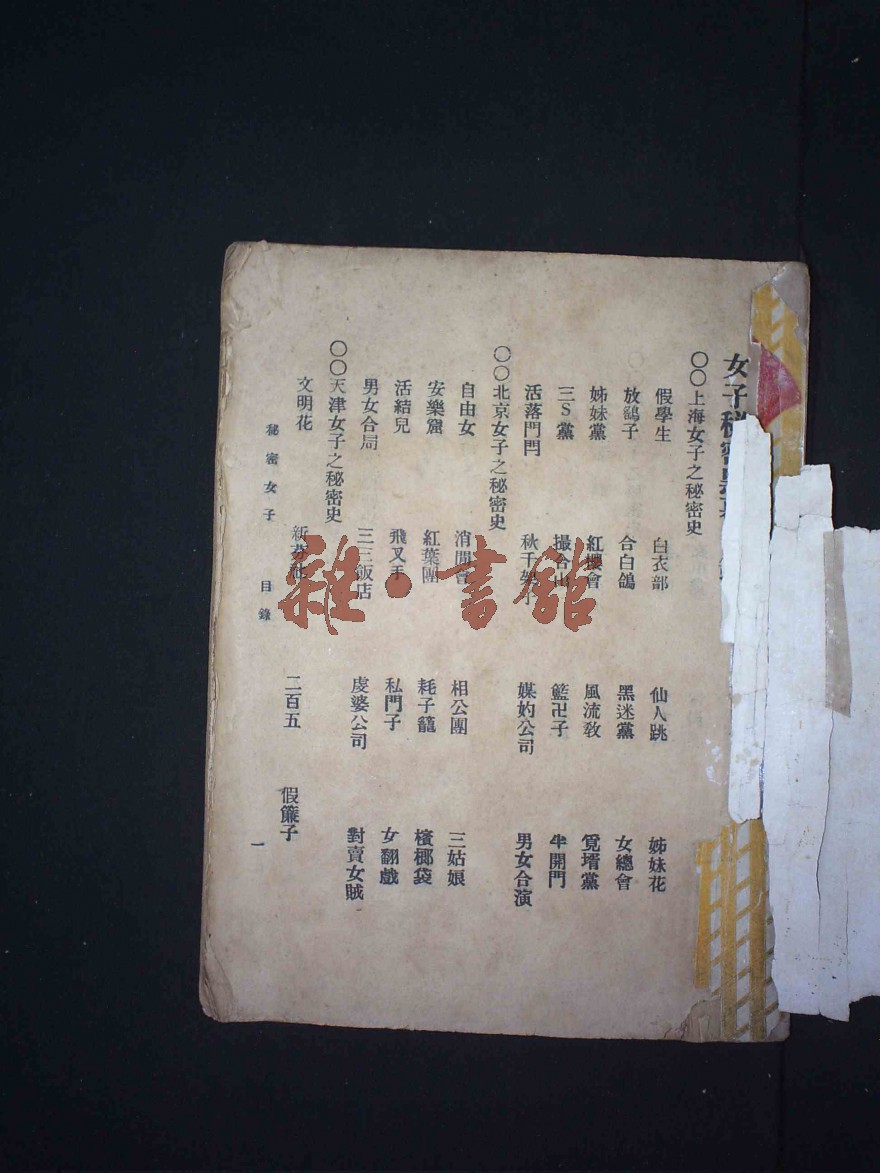 女子秘密
〇〇上海女子之秘密史
假學生 白衣部 仙人跳 姊妹花
放鷂子 合白鴿 黑迷黨 女總會
姊妹黨 紅櫻會 風流敎 覓壻黨
三S黨 撮合山 籃卍子 半開門
活落門閂 秋千架子 媒妁公司 男女合演
〇〇北京女子之秘密史
自由女 消閒會 相公團 三姑娘
安樂窟 紅葉團 耗子籠 檳榔袋
活結兒 飛叉手 私門子 女翻戲
男女合局 三三飯店 虔婆公司 對賣女賊
〇〇天津女子之秘密史
文明花 新 二百五 假簾子
秘密女子 目錄 一
雜·書館